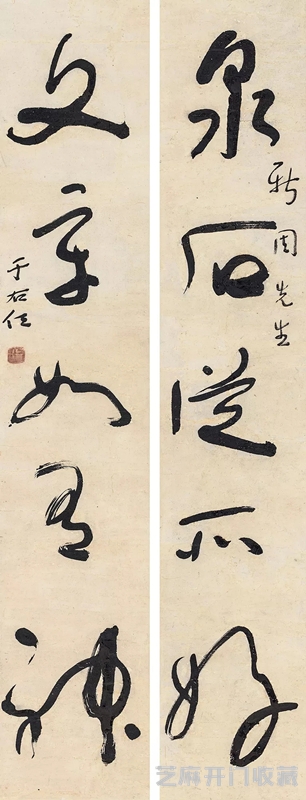 泉石從所好
新周先生
文章如有神
于右任
芝麻开门收藏